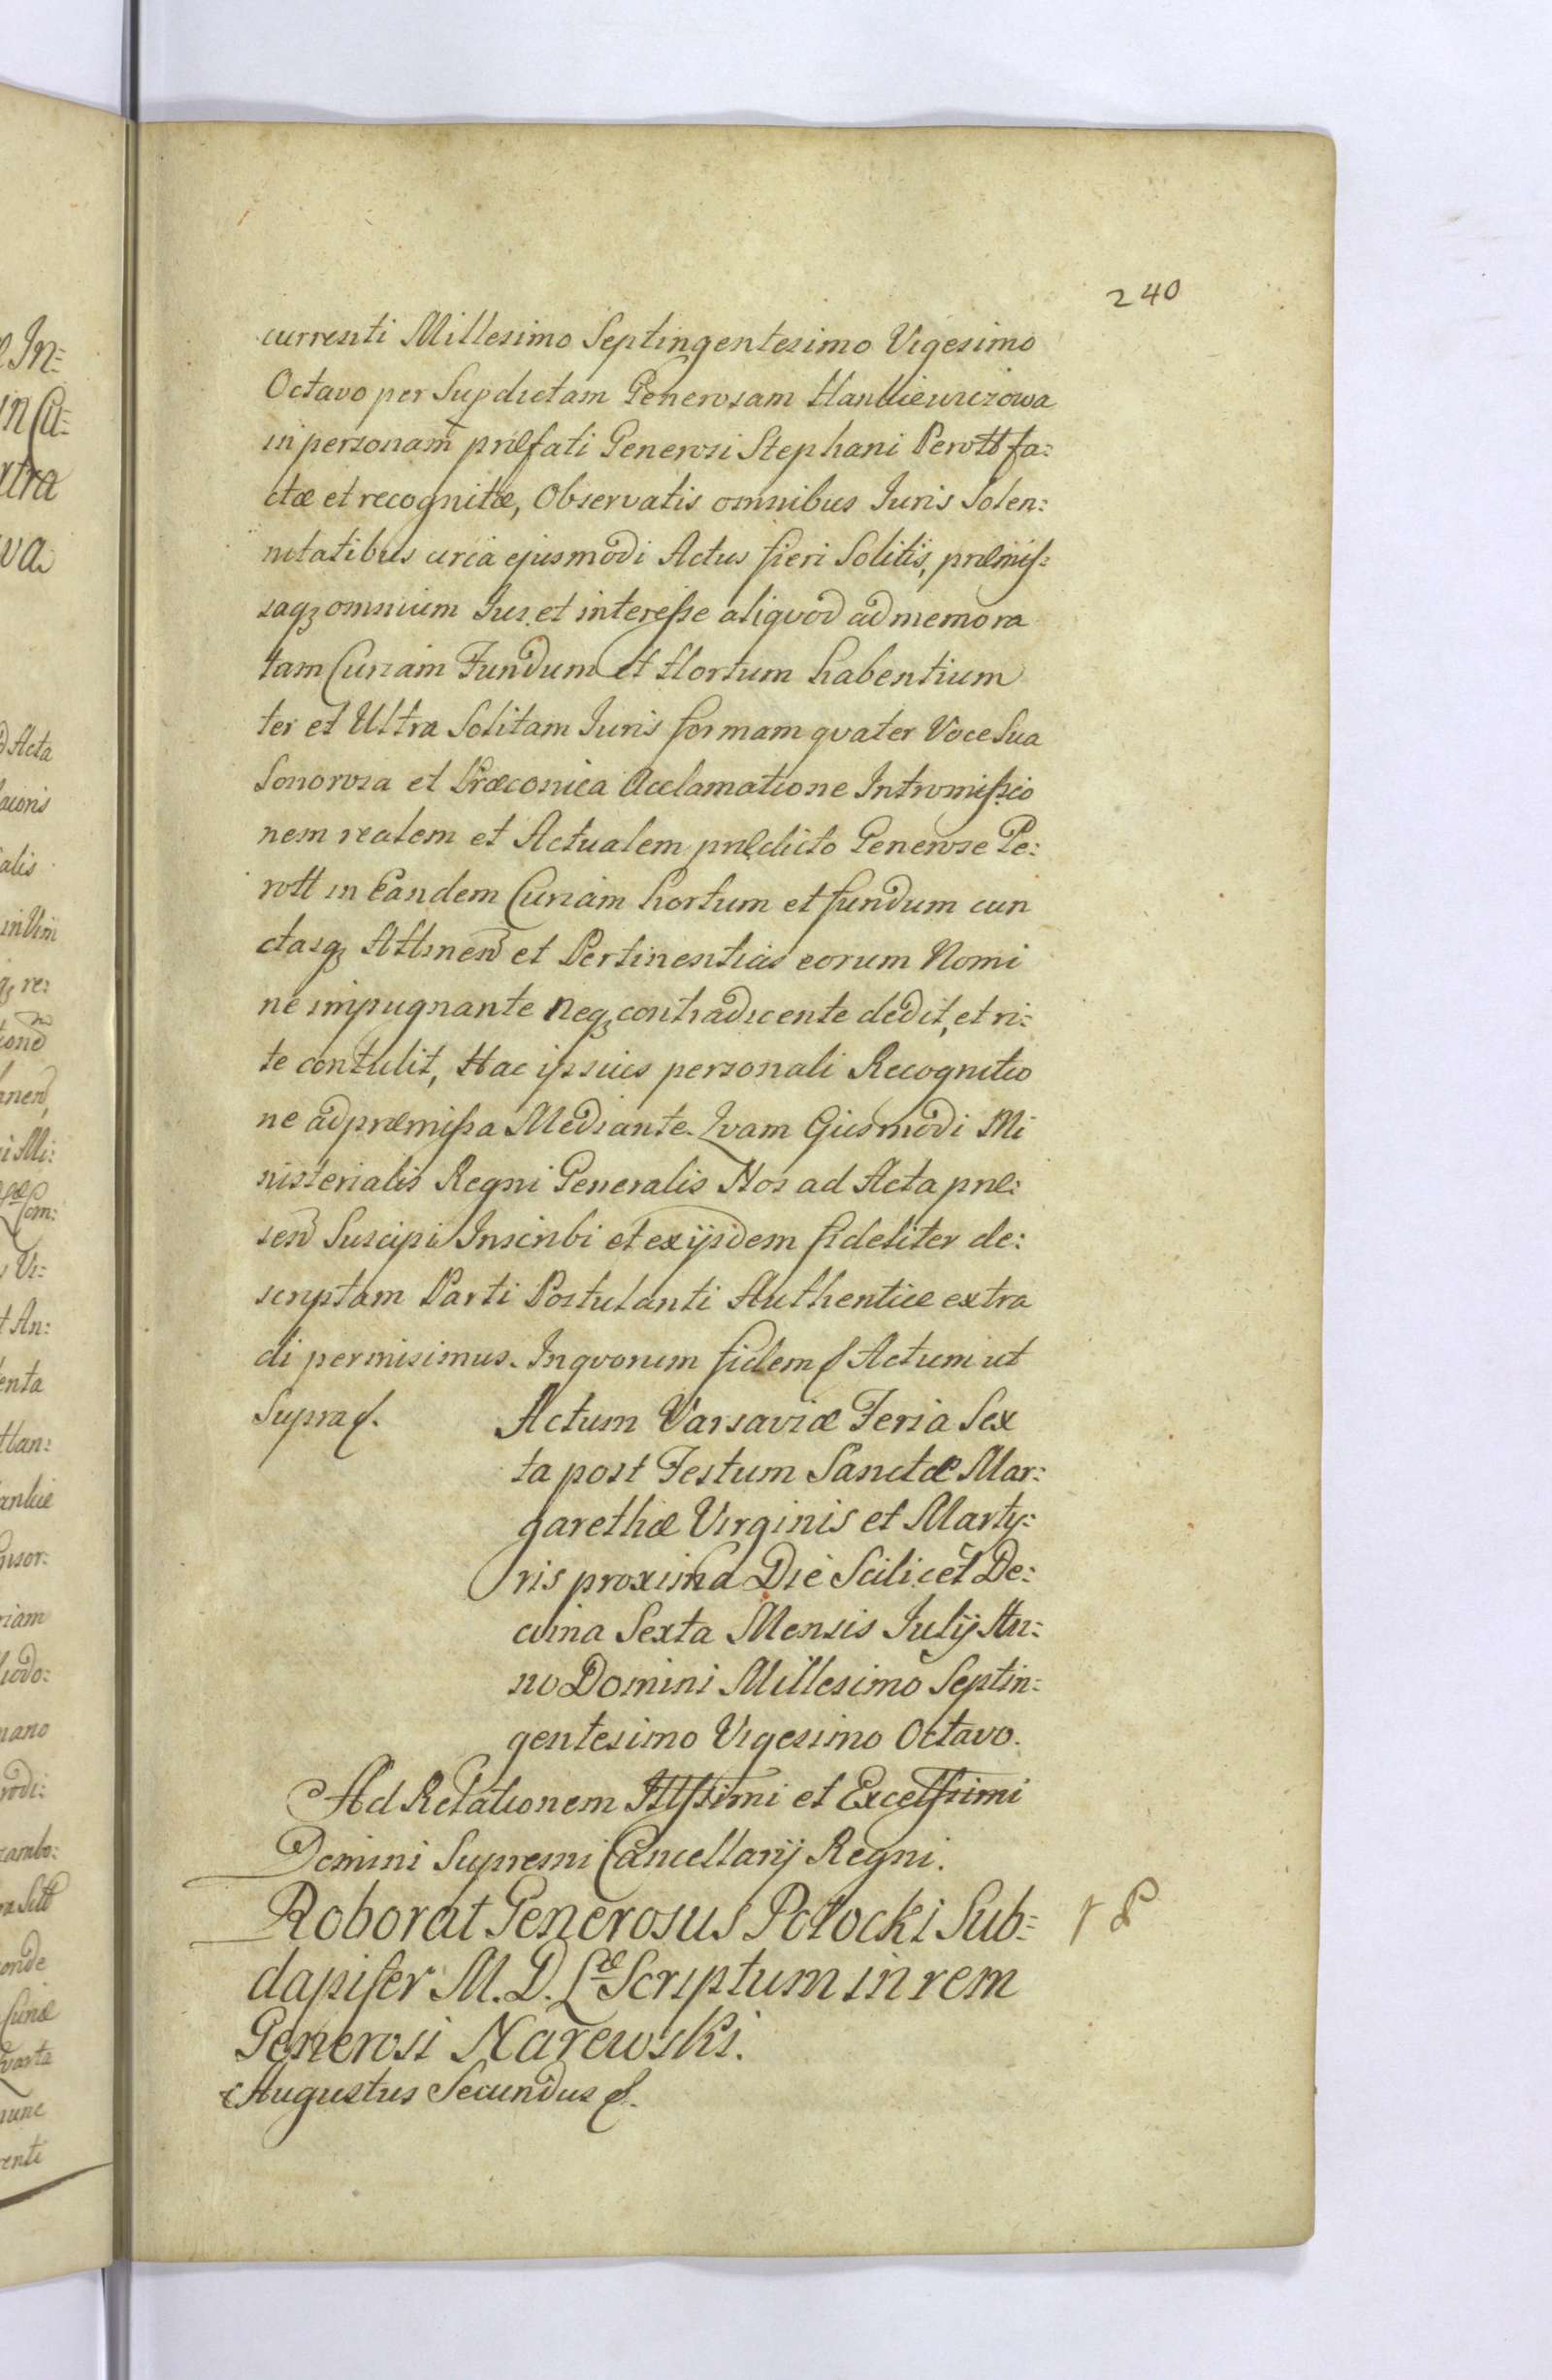 240
currenti Millesimo Septingentesimo Vigesimo
Octavo per Supdictam Generosam Hankiewiczowa
in personam præfati Generosi Stephani Perott fa:
ctæ et recognitæ, Observatis omnibus Iuris Solen:
nitatibus circa ejusmodi Actus fieri Solitis, præmis:
saq₃ omnium Jus et interesse aliquod ad memora
tam Curiam Fundum et Hortum habentium
ter et Ultra Solitam Iuris formam quater Voce Sua
Sonorosa et Præconica Acclamatione Intromissio
nem realem et Actualem prædicto Generose Pe:
rott in Eandem Curiam hortum et fundum cun
ctasq₃ Attinen et Pertinentias eorum Nomi
ne impugnante neq₃ contradicente dedit, et ri:
te contulit, Hac ipsius personali Recognitio
ne ad præmissa Mediante. Quam Ejusmodi Mi
nisterialis Regni Generalis Nos ad Acta præ:
sen Suscipi Inscribi et ex ijsdem fideliter de:
scriptam Parti Postulanti Authentice extra
di permisimus. In quorum fidem Actum ut
Supra
Actum Varsaviæ Feria Sex
ta post Festum Sanctæ Mar:
garethæ Virginis et Marty:
ris proxima Die Scilicet De:
cima Sexta Mensis Julij An:
no Domini Millesimo Septin:
gentesimo Vigesimo Octavo.
Ad Relationem Illssimi et Excelssimi
Domini Supremi Cancellarij Regni.
Roborat Generosus Potocki Sub:
dapifer M. D. Læ Scriptum in rem
Generosi Narewski.
Augustus Secundus